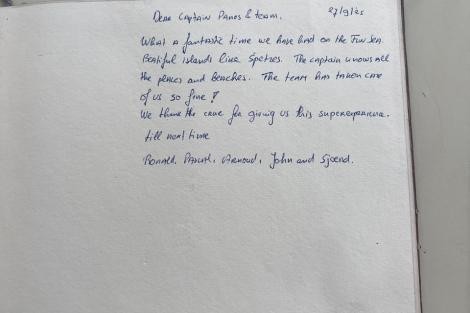 Dear Captain Panos & team. 27/9/25
What a fantastic time we have had on the Fun Sea.
Beatiful islands like Spetses. The captain knows all
the places and beaches. The team has taken care
of us so fine!
We thank the crue for giving us this superexperience.
till next time
Ronald, John and Sjoerd.